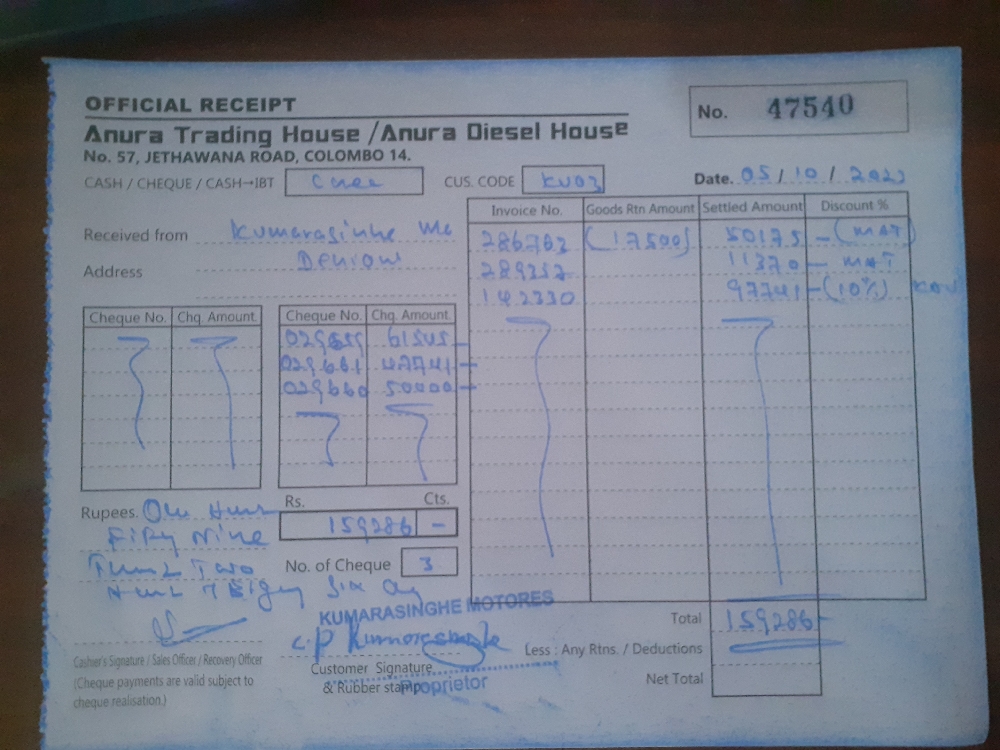 OFFICIAL RECEIPT
No. 47540
Anura Trading House /Anura Diesel House
No. 57, JETHAWANA ROAD, COLOMBO 14.
CASH / CHEQUE / CASH→IBT
CUS. CODE KU03
Date. 05 / 10 /
Received from Kumarasinghe Mo
Address
Invoice No. Goods Rtn Amount Settled Amount Discount %
286762 (17500) 50175 - (MAT)
289352 11370 - MAT
142330 97741 - (10%)
Cheque No. Chq. Amount Cheque No. Chq. Amount
029659 61545 -
029661 47741 -
029660 50000 -
Rupees. One Hun
Fifty Nine
Two
Six
Rs. Cts.
159286 -
No. of Cheque 3
KUMARASINGHE MOTORES
C.P Kumarasinghe
Customer Signature
& Rubber stamp
Proprietor
Cashier's Signature / Sales Officer / Recovery Officer
(Cheque payments are valid subject to
cheque realisation.)
Total 159286 -
Less : Any Rtns. / Deductions
Net Total